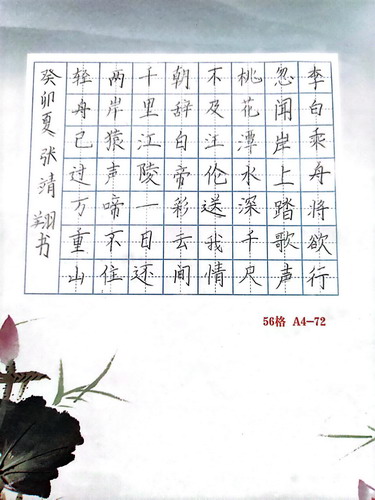 李白乘舟将欲行
忽闻岸上踏歌声
桃花潭水深千尺
不及汪伦送我情
朝辞白帝彩云间
千里江陵一日还
两岸猿声啼不住
轻舟已过万重山
癸卯夏张靖翔书
56格 A4-72